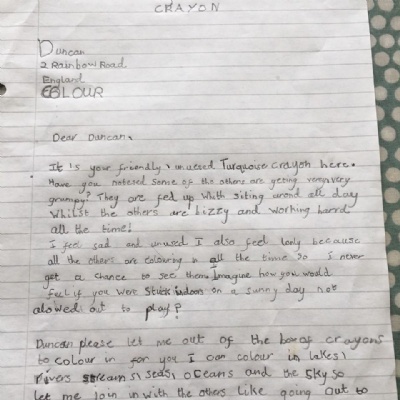 CRAYON
Duncan
2 Rainbow Road
England
COLOUR
Dear Duncan,
It is your friendly, unuesed Turquoise crayon here.
Have you noteced some of the others are geting veryvery
grumpy? They are fed up whith siting arond all day
Whilst the others are bizzy and working harrd
all the time!
I feel sad and unused I also feel lonly because
all the others are colouring in all the time so I never
get a chance to see them. Imagine how you would
feel if you were stuck indoors on a sunny day not
alowed out to play?
Duncan please let me out of the box of crayons
to colour in for you I can colour in lakes,
rivers streams, seas, oceans and the sky so
let me join in with the others like going out to